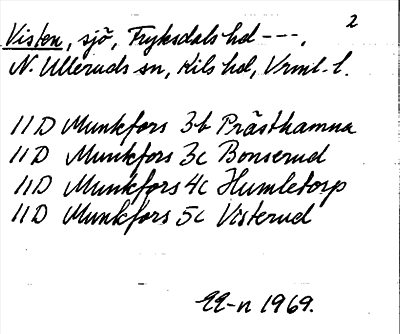 2
Visten, sjö, Fryksdals hd ---.
N. Ulleruds sn, Kils hd, Vrml. l.
11D Munkfors 3b Prästhamna
11D Munkfors 3c Bonserud
11D Munkfors 4c Humletorp
11D Munkfors 5c Visterud
22-n 1969.